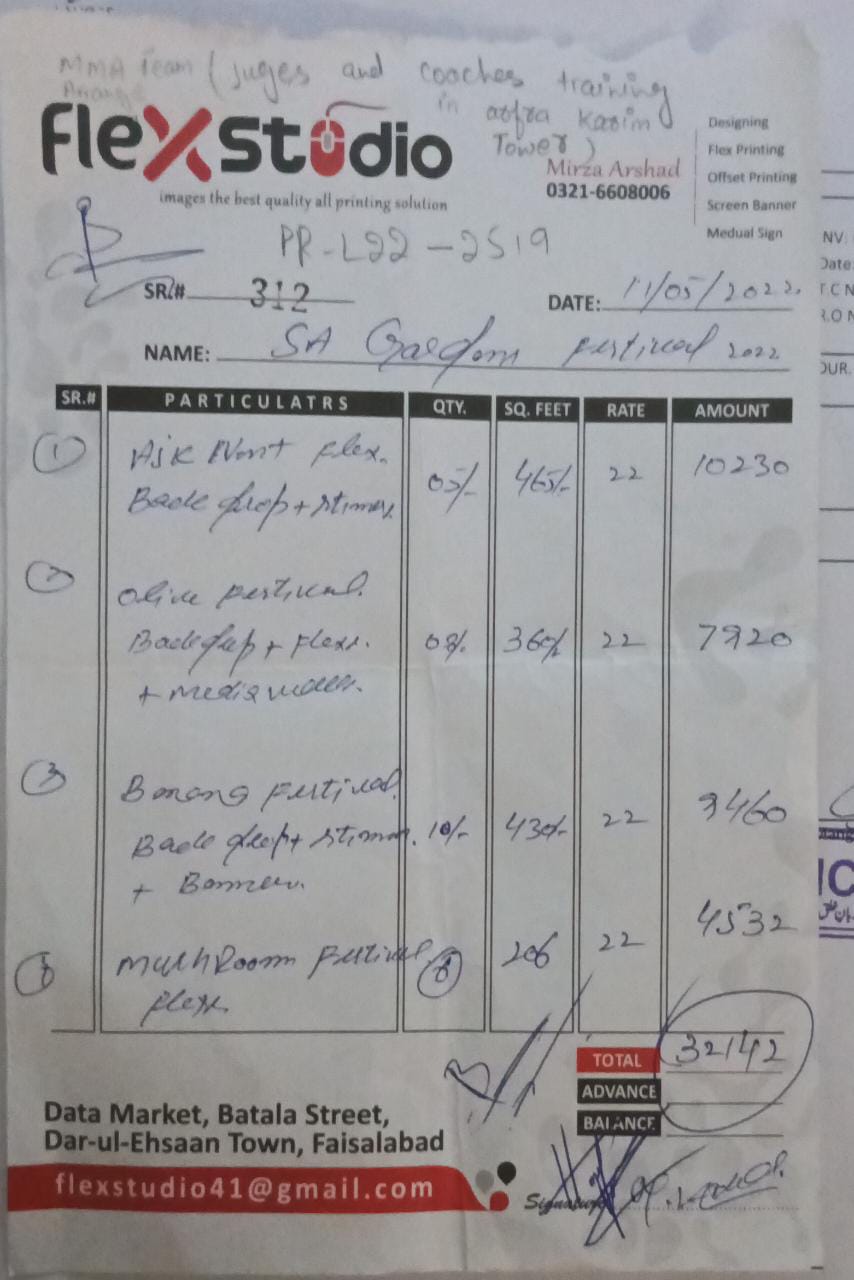 MMA Team (Juges and coaches training
Arrange in arfra Karim
Tower)
flexstudio
images the best quality all printing solution
Mirza Arshad
0321-6608006
Designing
Flex Printing
Offset Printing
Screen Banner
Medual Sign
PR-L22-2519
SR.# 312
DATE: 11/05/2022.
NAME: SA Garden festival 2022
SR.# PARTICULATRS QTY. SQ. FEET RATE AMOUNT
1 Flex. 05/- 465/- 22 10230
Back drop +
2 Olive festival.
Back drop + Flex. 08/- 360/- 22 7920
+ media
3 festival. 22 9460
Back drop + 10/- 430/-
+ Banner.
4 MushRoom festival 206 22 4532
flex
TOTAL 32142
ADVANCE
BALANCE
Data Market, Batala Street,
Dar-ul-Ehsaan Town, Faisalabad
flexstudio41@gmail.com
Signature
NV.
Date
T.C N
R.O N
OUR.